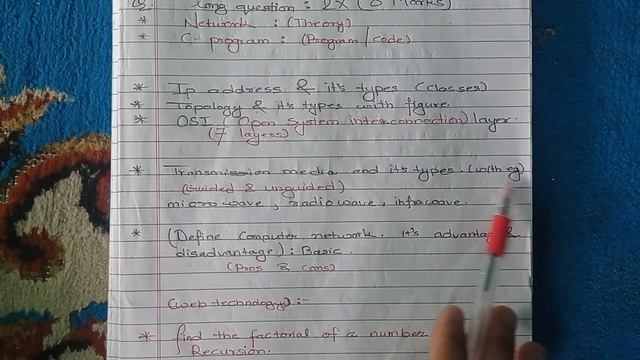 Q. long question: 2X (8 Marks)
* Network: (Theory)
* C-program: (Program/code)
* Ip address & it's types (classes)
* Topology & it's types with figure.
* OSI (Open System interconnection) layer.
(7 layers)
* Transmission media and its types. (with eg)
(Guided & unguided)
microwave, radiowave, infrawave.
* (Define Computer network. It's advantage &
disadvantage): Basic.
(Pros & cons)
(web technology):-
* find the factorial of a number
Recursion.